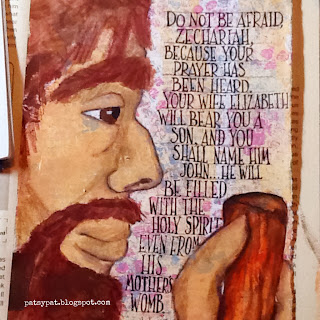 DO NOT BE AFRAID,
ZECHARIAH,
BECAUSE YOUR
PRAYER HAS
BEEN HEARD.
YOUR WIFE ELIZABETH
WILL BEAR YOU A
SON, AND YOU
SHALL NAME HIM
JOHN... HE WILL
BE FILLED
WITH THE
HOLY SPIRIT
EVEN FROM
HIS
MOTHERS
WOMB.
patsypat.blogspot.com